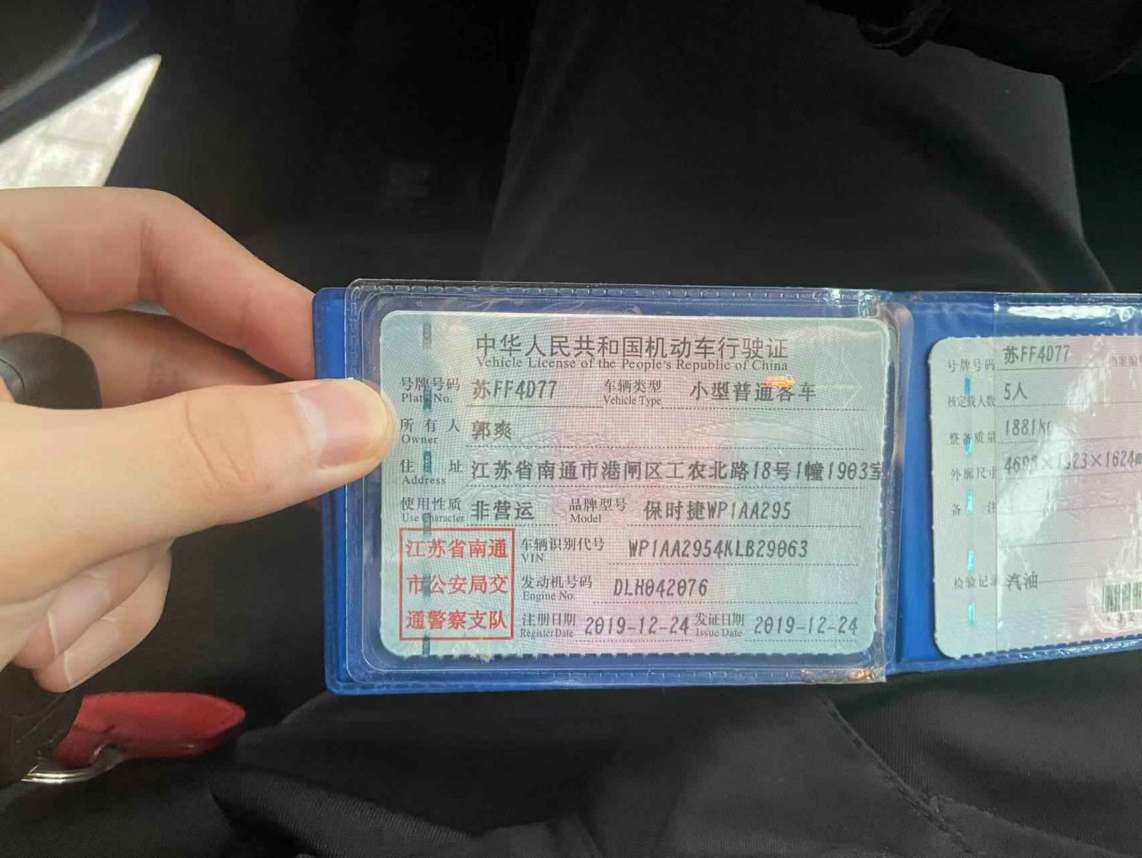 中华人民共和国机动车行驶证
Vehicle License of the People's Republic of China
号牌号码 苏FF4D77 车辆类型 小型普通客车
Plate No. Vehicle Type
所有人 郭爽
Owner
住址 江苏省南通市港闸区工农北路18号1幢1903室
Address
使用性质 非营运 品牌型号 保时捷WP1AA295
Use Character Model
江苏省南通
市公安局交
通警察支队
车辆识别代号 WP1AA2954KLB29063
VIN
发动机号码 DLH042076
Engine No.
注册日期 2019-12-24 发证日期 2019-12-24
Register Date Issue Date
号牌号码 苏FF4D77
核定载人数 5人
整备质量 1881kg
外廓尺寸
备注
检验记录 汽油